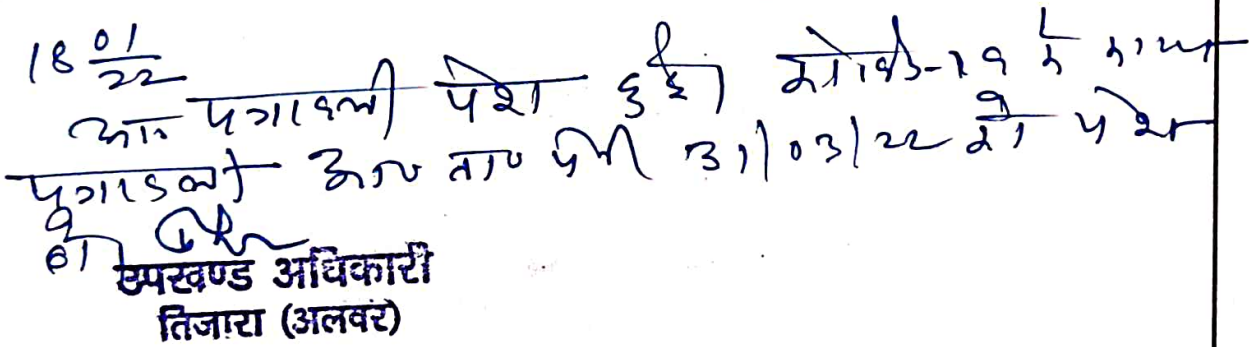 18 01/22
आज पत्रावली पेश हुई। कोविड-19 के कारण
पत्रावली आ० ता० पेशी 31/03/22 को पेश
हो।
उपखण्ड अधिकारी
तिजारा (अलवर)